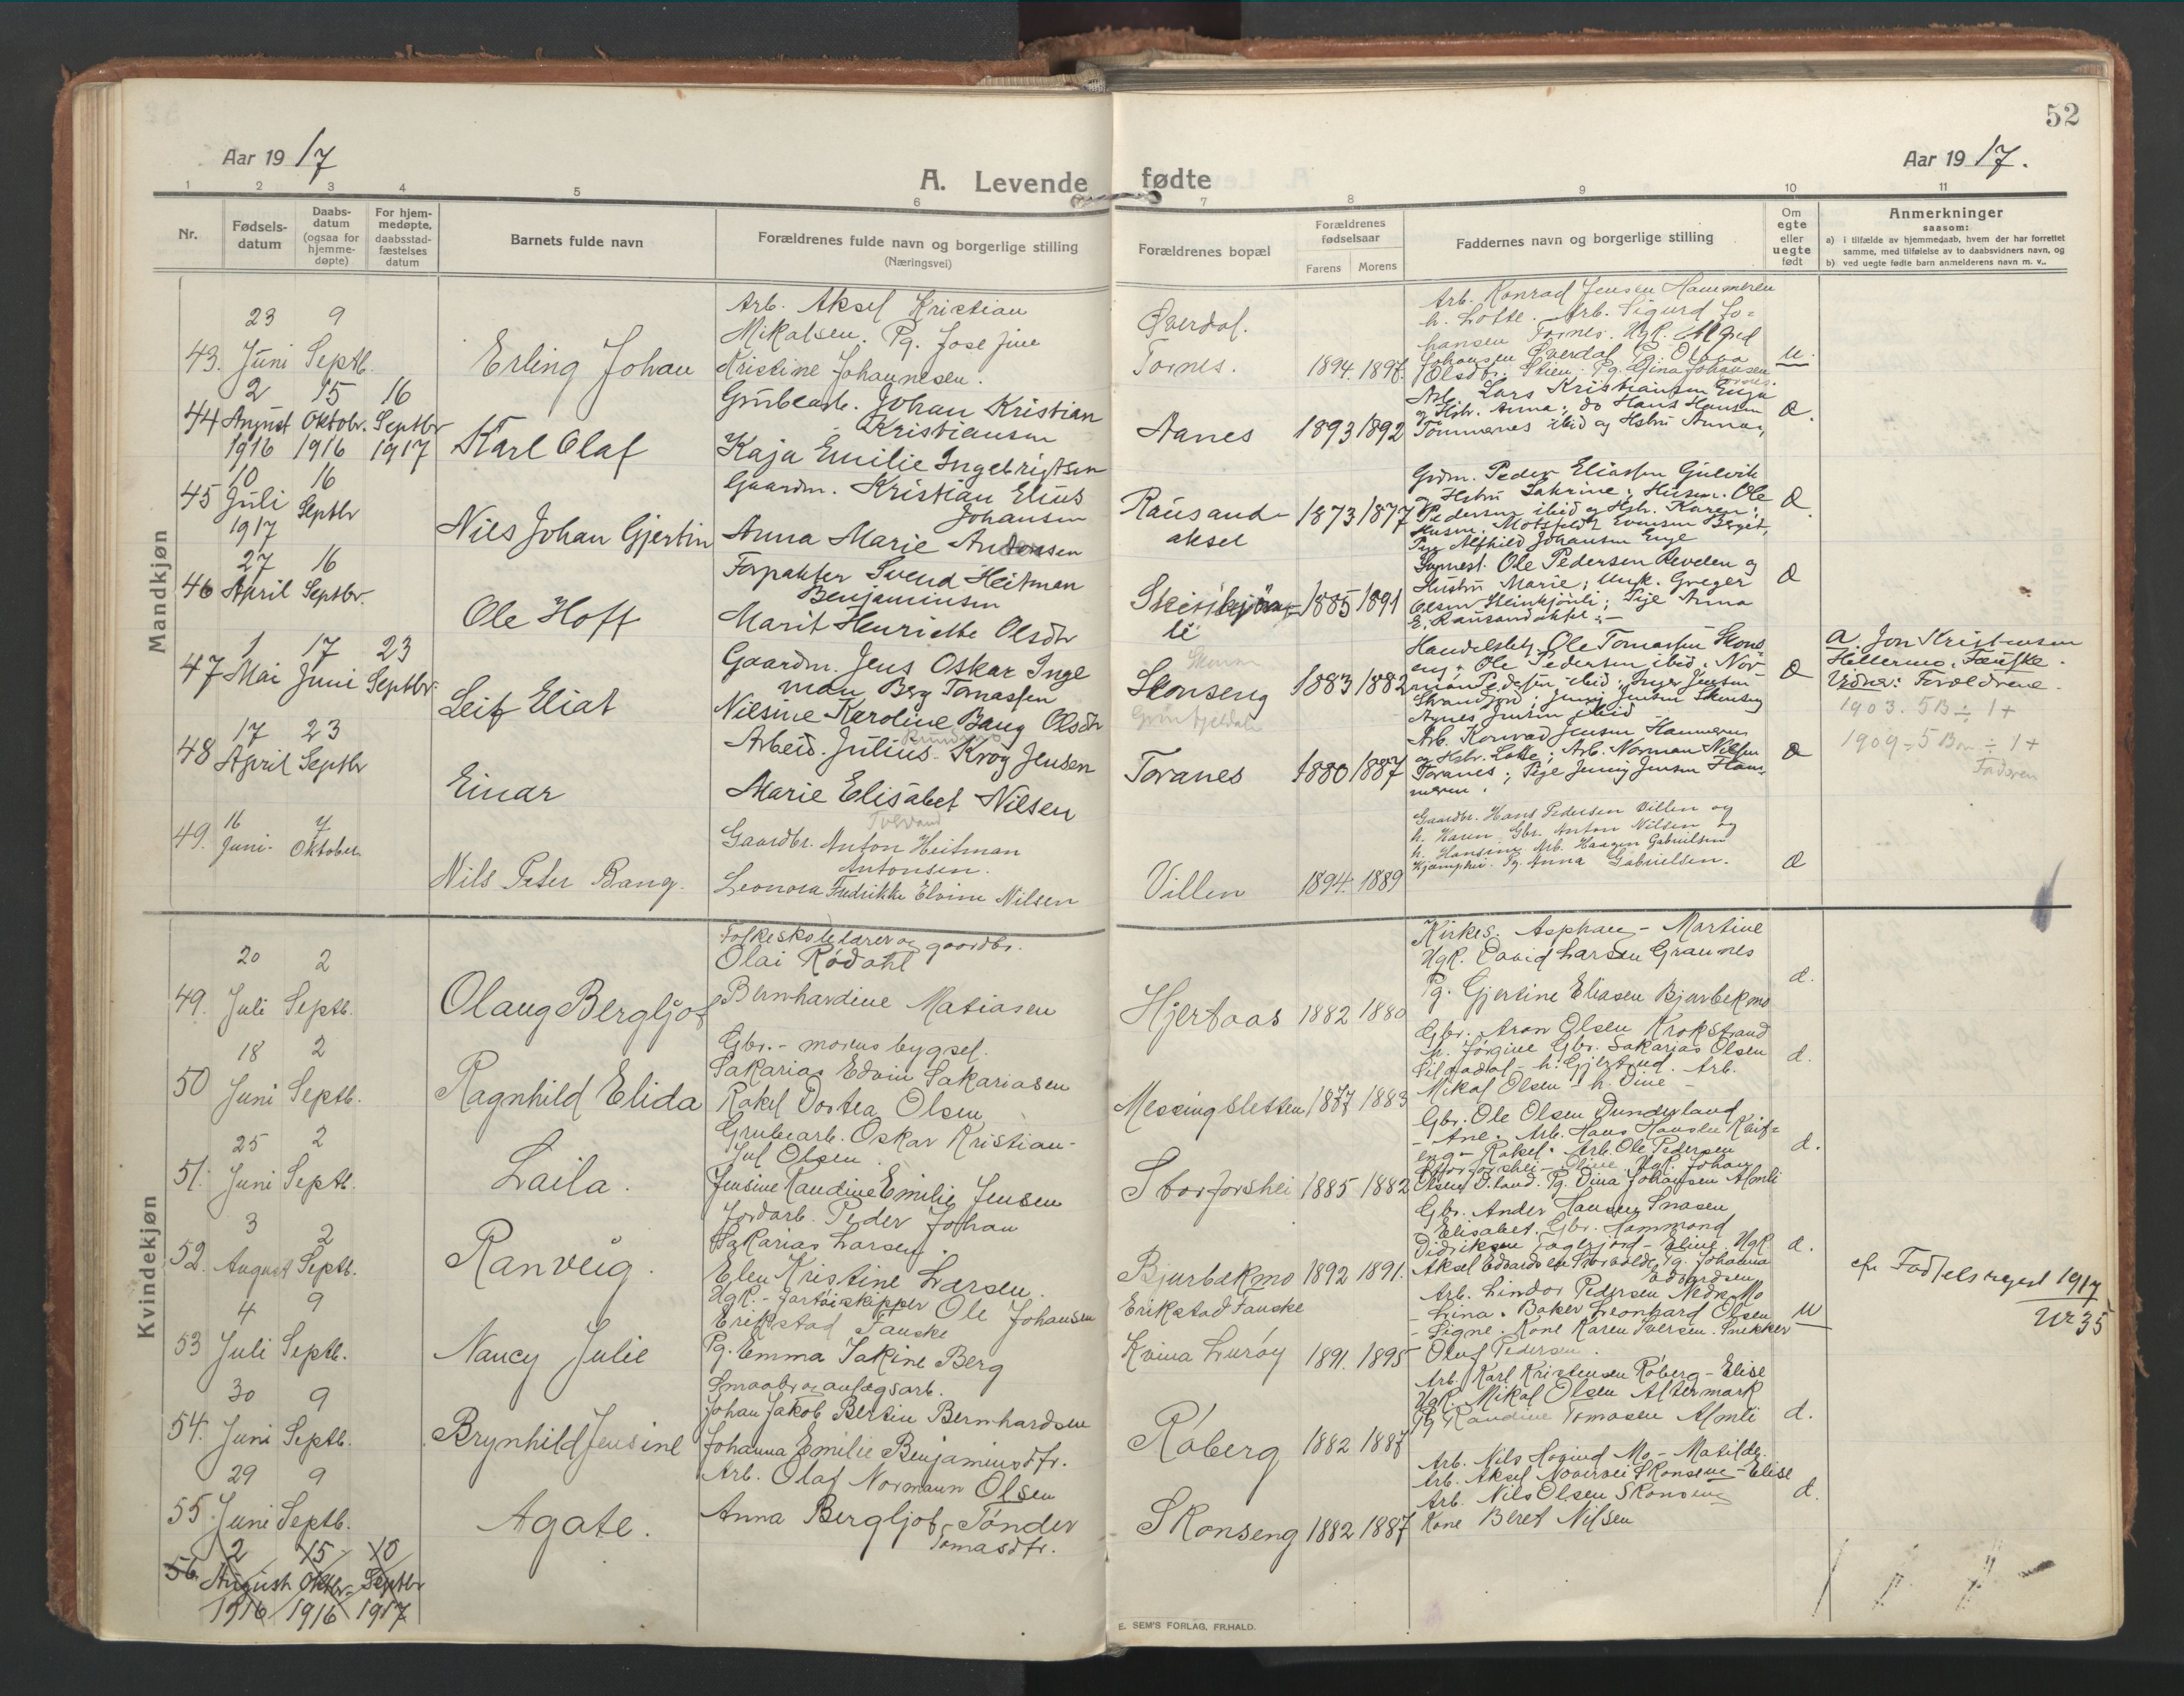 52
Aar 1917
Aar 1917.
A. Levende fødte
1 2 3 4 5 6 7 8 9 10 11
Nr.
Fødsels-
datum
Daabs-
datum
(ogsaa for
hjemme-
døpte)
For hjem-
medøpte,
daabsstad-
fæstelses
datum
Barnets fulde navn
Forældrenes fulde navn og borgerlige stilling
(Næringsvei)
Forældrenes bopæl
Forældrenes
fødselsaar
Farens Morens
Faddernes navn og borgerlige stilling
Om
egte
eller
uegte
født
Anmerkninger
saasom:
a) i tilfælde av hjemmedaab, hvem der har forrettet
samme, med tilføielse av to daabsvidners navn, og
b) ved uegte fødte barn anmelderens navn m. v..
Mandkjøn
43. 23 Juni 9 Septb.
Erling Johan
Arb. Aksel Kristian
Mikalsen. Pg. Josefine
Kristine Johannesen.
Øverdal.
Tornes. 1894. 1897.
Arb. Konrad Jensen Hammeren
h. Lotte. Arb. Sigurd Jo-
hansen Tornes. Ugk. Alfred
Johansen Øverdal
u.
44 2 August 1916 15 Oktobr. 1916 16 Septbr 1917
Karl Olaf
Grubearb. Johan Kristian
Kristiansen
Kaja Emilie Ingebrigtsen
Aanes 1893 1892
Arb. Lars Kristiansen
og Hstr. Anna; do Hans Hansen
Tømmernes ibid og Hstru Anna,
Æ.
45 10 Juli 1917 16 Septbr
Nils Johan Gjertin
Gaardm. Kristian Elius
Johansen
Anna Marie Andersen
Rausand-
aksel 1873 1877
Grdm. Peder Eliassen Gulvik
og Hstru Sakrine; Husm. Ole
Pedersen ibid og Hstr. Karen;
Pige Alfhild Johansen Enge
Æ
46 27 April 16 Septbr.
Ole Hoff
Forpakter Svend Heitman
Benjaminsen
Marit Henriette Olsdtr
1885 1891
Ole Pedersen Revelen og
Hustru Marie; Ungk. Greger
Olsen; Pije Anna
E. Rausandaksel
Æ
47 1 Mai 17 Juni 23 Septbr.
Leif Eliat
Gaardm. Jens Oskar Inge
man Berg Tomassen
Nilsine Karoline Bang Olsdtr
Skonseng 1883 1882
Handelsbetj. Ole Tomassen Skons
eng; Ole Pedersen ibid; Nor-
man Pedersen ibid; Inger Jensen
Strandjord; Jenny Jensen Skonseng
Agnes Jensen ibid
Æ
a. Jon Kristensen
Hellermo, Fauske.
Vidner: Forældrene.
48 17 April 23 Septbr
Einar
Arbeid. Julius Krog Jensen
Marie Elisabet Nilsen
Toranes 1880 1887
Arb. Konrad Jensen Hammeren
og Hstr. Lotte; Arb. Norman Nilsen
Toranes; Pije Jenny Jensen Ham-
meren.
Æ
1903. 5 B ÷ 1 +
1909 ÷ 5 Bør ÷ 1 +
Faderen
49. 16 Juni 7 Oktober.
Nils Peter Bang.
Gaardbr. Anton Heitman
Antonsen.
Leonora Fredrikke Elvine Nilsen
Villen 1894. 1889
Gaardbr. Hans Pedersen Villen og
h. Karen. Gbr. Anton Nilsen og
h. Hansine. Arb. Haagen Gabrielsen
Kjæmphei. Pg. Anna Gabrielsen.
Æ
Kvindekjøn
49. 20 Juli 2 Septb.
Olaug Bergljot
Folkeskolelærer og gaardbr.
Olai Rødahl
Bernhardine Matiasen
Hjertaas 1882 1880
Kirkes. Asphaug - Martine
Ugk. David Larsen Grannes
Pg. Gjertine Eliasen Bjurbekmo
d.
50 18 Juni 2 Septb.
Ragnhild Elida
Gbr. - morens bygsel.
Sakarias Edvin Sakariasen
Rakel Dortea Olsen
Messingsletten 1877 1883
Gbr. Aron Olsen Krokstrand
h. Jørgine Gbr. Sakarias Olsen
h. Gjertrud. Arb.
Mikal Olsen - h. Dine
d.
51. 25 Juni 2 Septb.
Laila.
Grubearb. Oskar Kristian-
Jul Olsen.
Jensine Kandine Emilie Jensen
Storforshei 1885 1882
Gbr. Ole Olsen Dunderland
- Ane. Arb. Hans Hansen
eng - Rakel. Arb. Ole Pedersen
Storforshei - Oline. Ugk. Johan
Olsen D.land. Pg. Dina Johansen Almli
d.
52. 3 August 2 Septb.
Ranveig.
Jordarb. Peder Johan
Sakarias Larsen.
Elen Kristine Larsen.
Bjurbekmo 1892 1891.
Gbr. Ander Hansen Snasen
- Elisabet. Gbr. Hammond
Didriksen Fagerjord - Eline. Ugk.
Aksel Edvardsen Pg. Johanna
Edvardsen
d.
53 4 Juli 9 Septb.
Nancy Julie
Ugk. - fartøiskipper Ole Johansen
Erikstad Fauske
Pg. Emma Jakine Berg
Erikstad Fauske
Kvina Lurøy 1891. 1895
Arb. Lindor Pedersen Nedre Mo
- Lina. Baker Leonhard Olsen
- Signe. Kone Karen Iversen. Snekker
Oluf Pedersen.
u
cfr Fødselsregist 1917
Nr 35
54. 30 Juni 9 Septb.
Brynhild Jensine
Smaabr. og anlægsarb.
Johan Jakob Bertin Bernhardsen
Johanna Emilie Benjaminsdtr.
Røberg 1882 1887
Arb. Karl Kristensen Røberg - Elise
Ugk. Mikal Olsen Altermark
Pg Randine Tomasen Almli
d.
55. 29 Juni 9 Septb.
Agate.
Arb. Olaf Normann Olsen
Anna Bergljot Tønder
Tomasdtr.
Skonseng 1882 1887
Arb. Nils Mo - Matilde.
Arb. Aksel Skonseng - Elise
Arb. Nils Olsen Skonseng
Kone Beret Nilsen
d.
56. 2 August 1916 15 Oktbr. 1916 10 Septbr 1917
E. SEM'S FORLAG, FR.HALD.